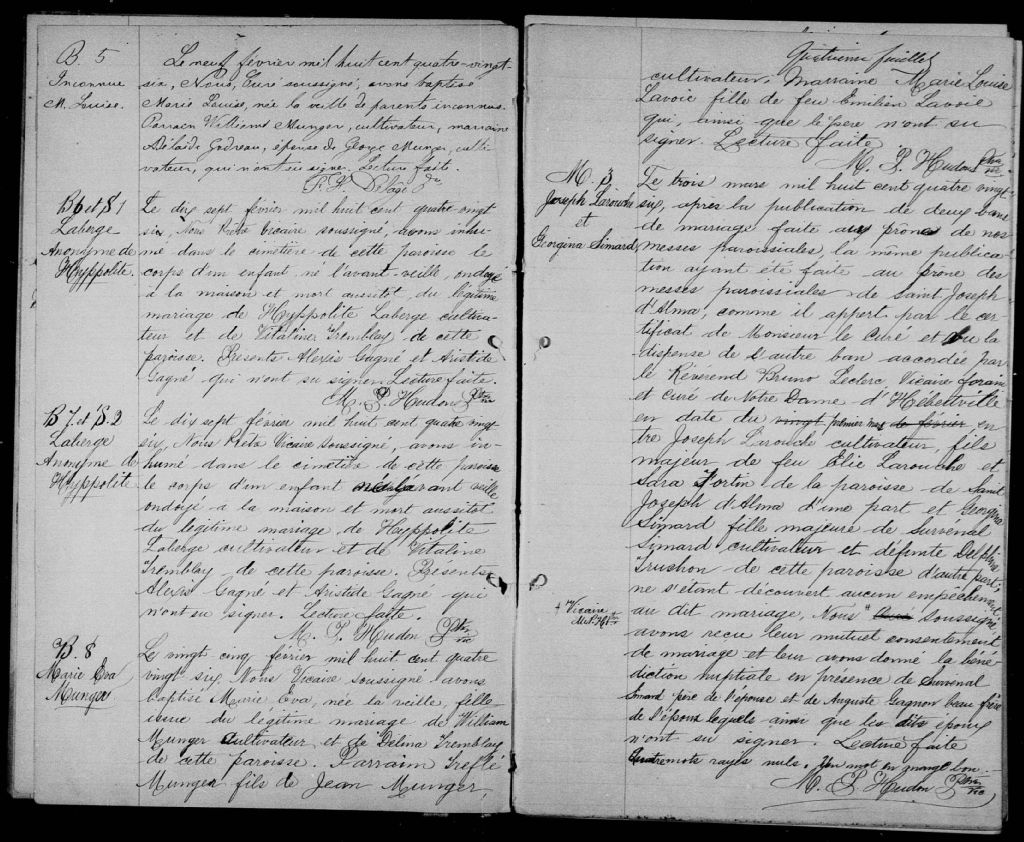 B. 5
Inconnue
M. Louise.
Le neuf février mil huit cent quatre-vingt-
six, Nous, Curé soussigné, avons baptisé
Marie Louise, née la veille de parents inconnus.
Parrain William Munger, cultivateur, marraine
Adélaïde Godreau, épouse de George Munger, culti-
vateur, qui n'ont su signer. Lecture faite.
B6 et S 1
Laberge
Anonyme de
Hyppolite.
Le dix sept février mil huit cent quatre-vingt
six, Nous Vicaire soussigné, avons inhu-
mé dans le cimetière de cette paroisse le
corps d'un enfant, né l'avant-veille, ondoyé
à la maison et mort aussitôt, du légitime
mariage de Hyppolite Laberge cultiva-
teur et de Vitaline Tremblay de cette
paroisse. Présents Alexis Gagné et Aristide
Gagné qui n'ont su signer. Lecture faite.
M. P. Hudon Ptre
vic
B 7. et S. 2
Laberge
Anonyme de
Hyppolite
Le dix sept février mil huit cent quatre vingt
six, Nous Vicaire soussigné, avons in-
humé dans le cimetière de cette paroisse
le corps d'un enfant avant veille
ondoyé à la maison et mort aussitôt
du légitime mariage de Hyppolite
Laberge cultivateur et de Vitaline
Tremblay de cette paroisse. Présents
Alexis Gagné et Aristide Gagné qui
n'ont su signer. Lecture faite.
M. P. Hudon Ptre
vic
B. 8
Marie Eva
Munger
Le vingt cinq février mil huit cent quatre
vingt six, Nous Vicaire soussigné avons
baptisé Marie, Eva, née la veille, fille
issue du légitime mariage de William
Munger cultivateur et de Délina Tremblay
de cette paroisse. Parrain Trefflé
Munger fils de Jean Munger,
feuillet
cultivateur. Marraine Marie Louise
Lavoie fille de feu Emilien Lavoie
qui, ainsi que le père n'ont su
signer. Lecture faite
M. P. Hudon Ptre
vic
M. 3
Joseph Larouche
et
Georgina Simard
Le trois mars mil huit cent quatre vingt
six, après la publication de deux bans
de mariage faite aux prônes de nos
messes paroissiales, la même publica-
tion ayant été faite au prône des
messes paroissiales de Saint Joseph
d'Alma, comme il appert par le cer-
tificat de Monsieur le Curé et vu la
dispense de l'autre ban accordée par
le Révérend Bruno Leclerc, Vicaire forain
et curé de Notre Dame d'Hébertville
en date du vingt premier mars de février en
tre Joseph Larouche cultivateur, fils
majeur de feu Elie Larouche et
Sara Fortin de la paroisse de Saint
Joseph d'Alma d'une part et Georgina
Simard fille majeure de Surrénal
Simard cultivateur et défunte Delphine
Truchon de cette paroisse d'autre part;
ne s'étant découvert aucun empêchement
au dit mariage, Nous + Curé soussigné
+ Vicaire
avons reçu leur mutuel consentement
de mariage et leur avons donné la béné-
diction nuptiale en présence de Surrenal
Simard père de l'épouse et de Auguste Gagnon beau frère
de l'époux lesquels ainsi que les dits époux
n'ont su signer. Lecture faite
Quatre mots rayés nuls. Un mot en marge bon.
M. P. Hudon Ptre
vic